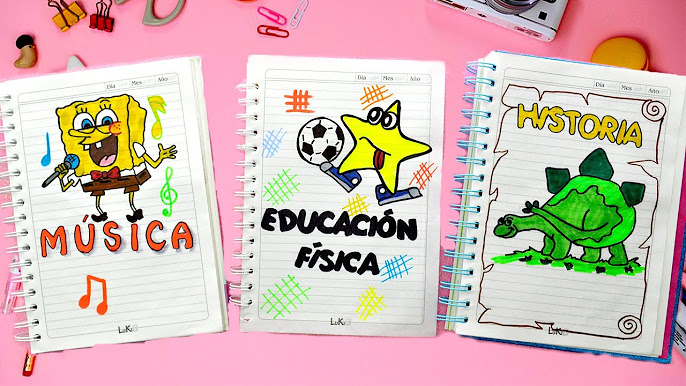 Día Mes Año
MÚSICA
LuKi
Día Mes Año
EDUCACIÓN
FÍSICA
LuKi
Día Mes Año
HISTORIA
LuKi